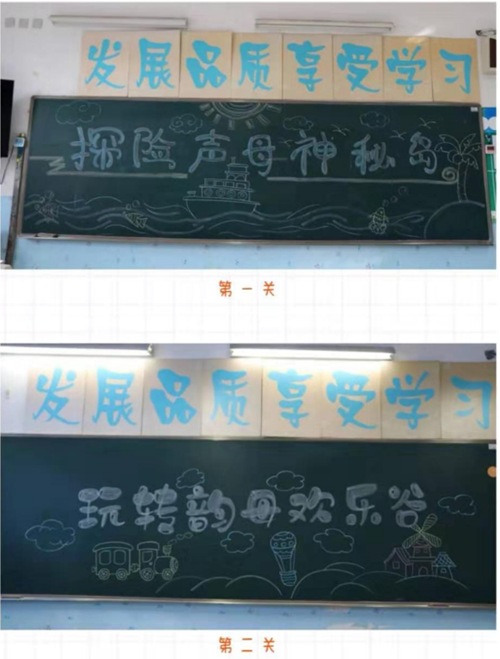 发展品质享受学习
探险声母神秘岛
第一关
发展品质享受学习
玩转韵母欢乐谷
第二关